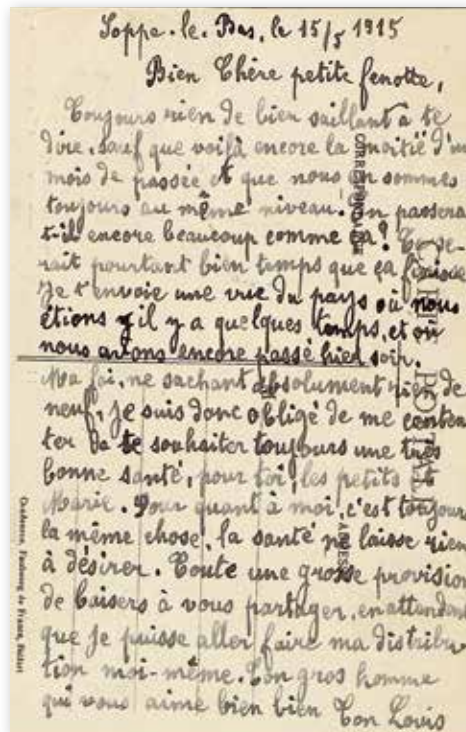 Soppe-le-Bas, le 15/5 1915
Bien Chère petite fenotte,
Toujours rien de bien saillant à te
dire, sauf que voilà encore la moitié d'un
mois de passée et que nous en sommes
toujours au même niveau. En passera
t-il encore beaucoup comme ça? Ce se-
rait pourtant bien temps que ça finisse
Je t'envoie une vue du pays où nous
étions y il y a quelques temps, et où
nous avons encore passé hier soir.
Ma foi, ne sachant absolument rien de
neuf, je suis donc obligé de me conten
ter de te souhaiter toujours une très
bonne santé, pour toi, les petits et
Marie. Pour quant à moi, c'est toujours
la même chose, la santé ne laisse rien
à désirer. Toute une grosse provision
de baisers à vous partager, en attendant
que je puisse aller faire ma distribu
tion moi-même. Ton gros homme
qui vous aime bien bien Ton Louis
CARTE POSTALE
CORRESPONDANCE
ADRESSE
Faubourg de France, Belfort